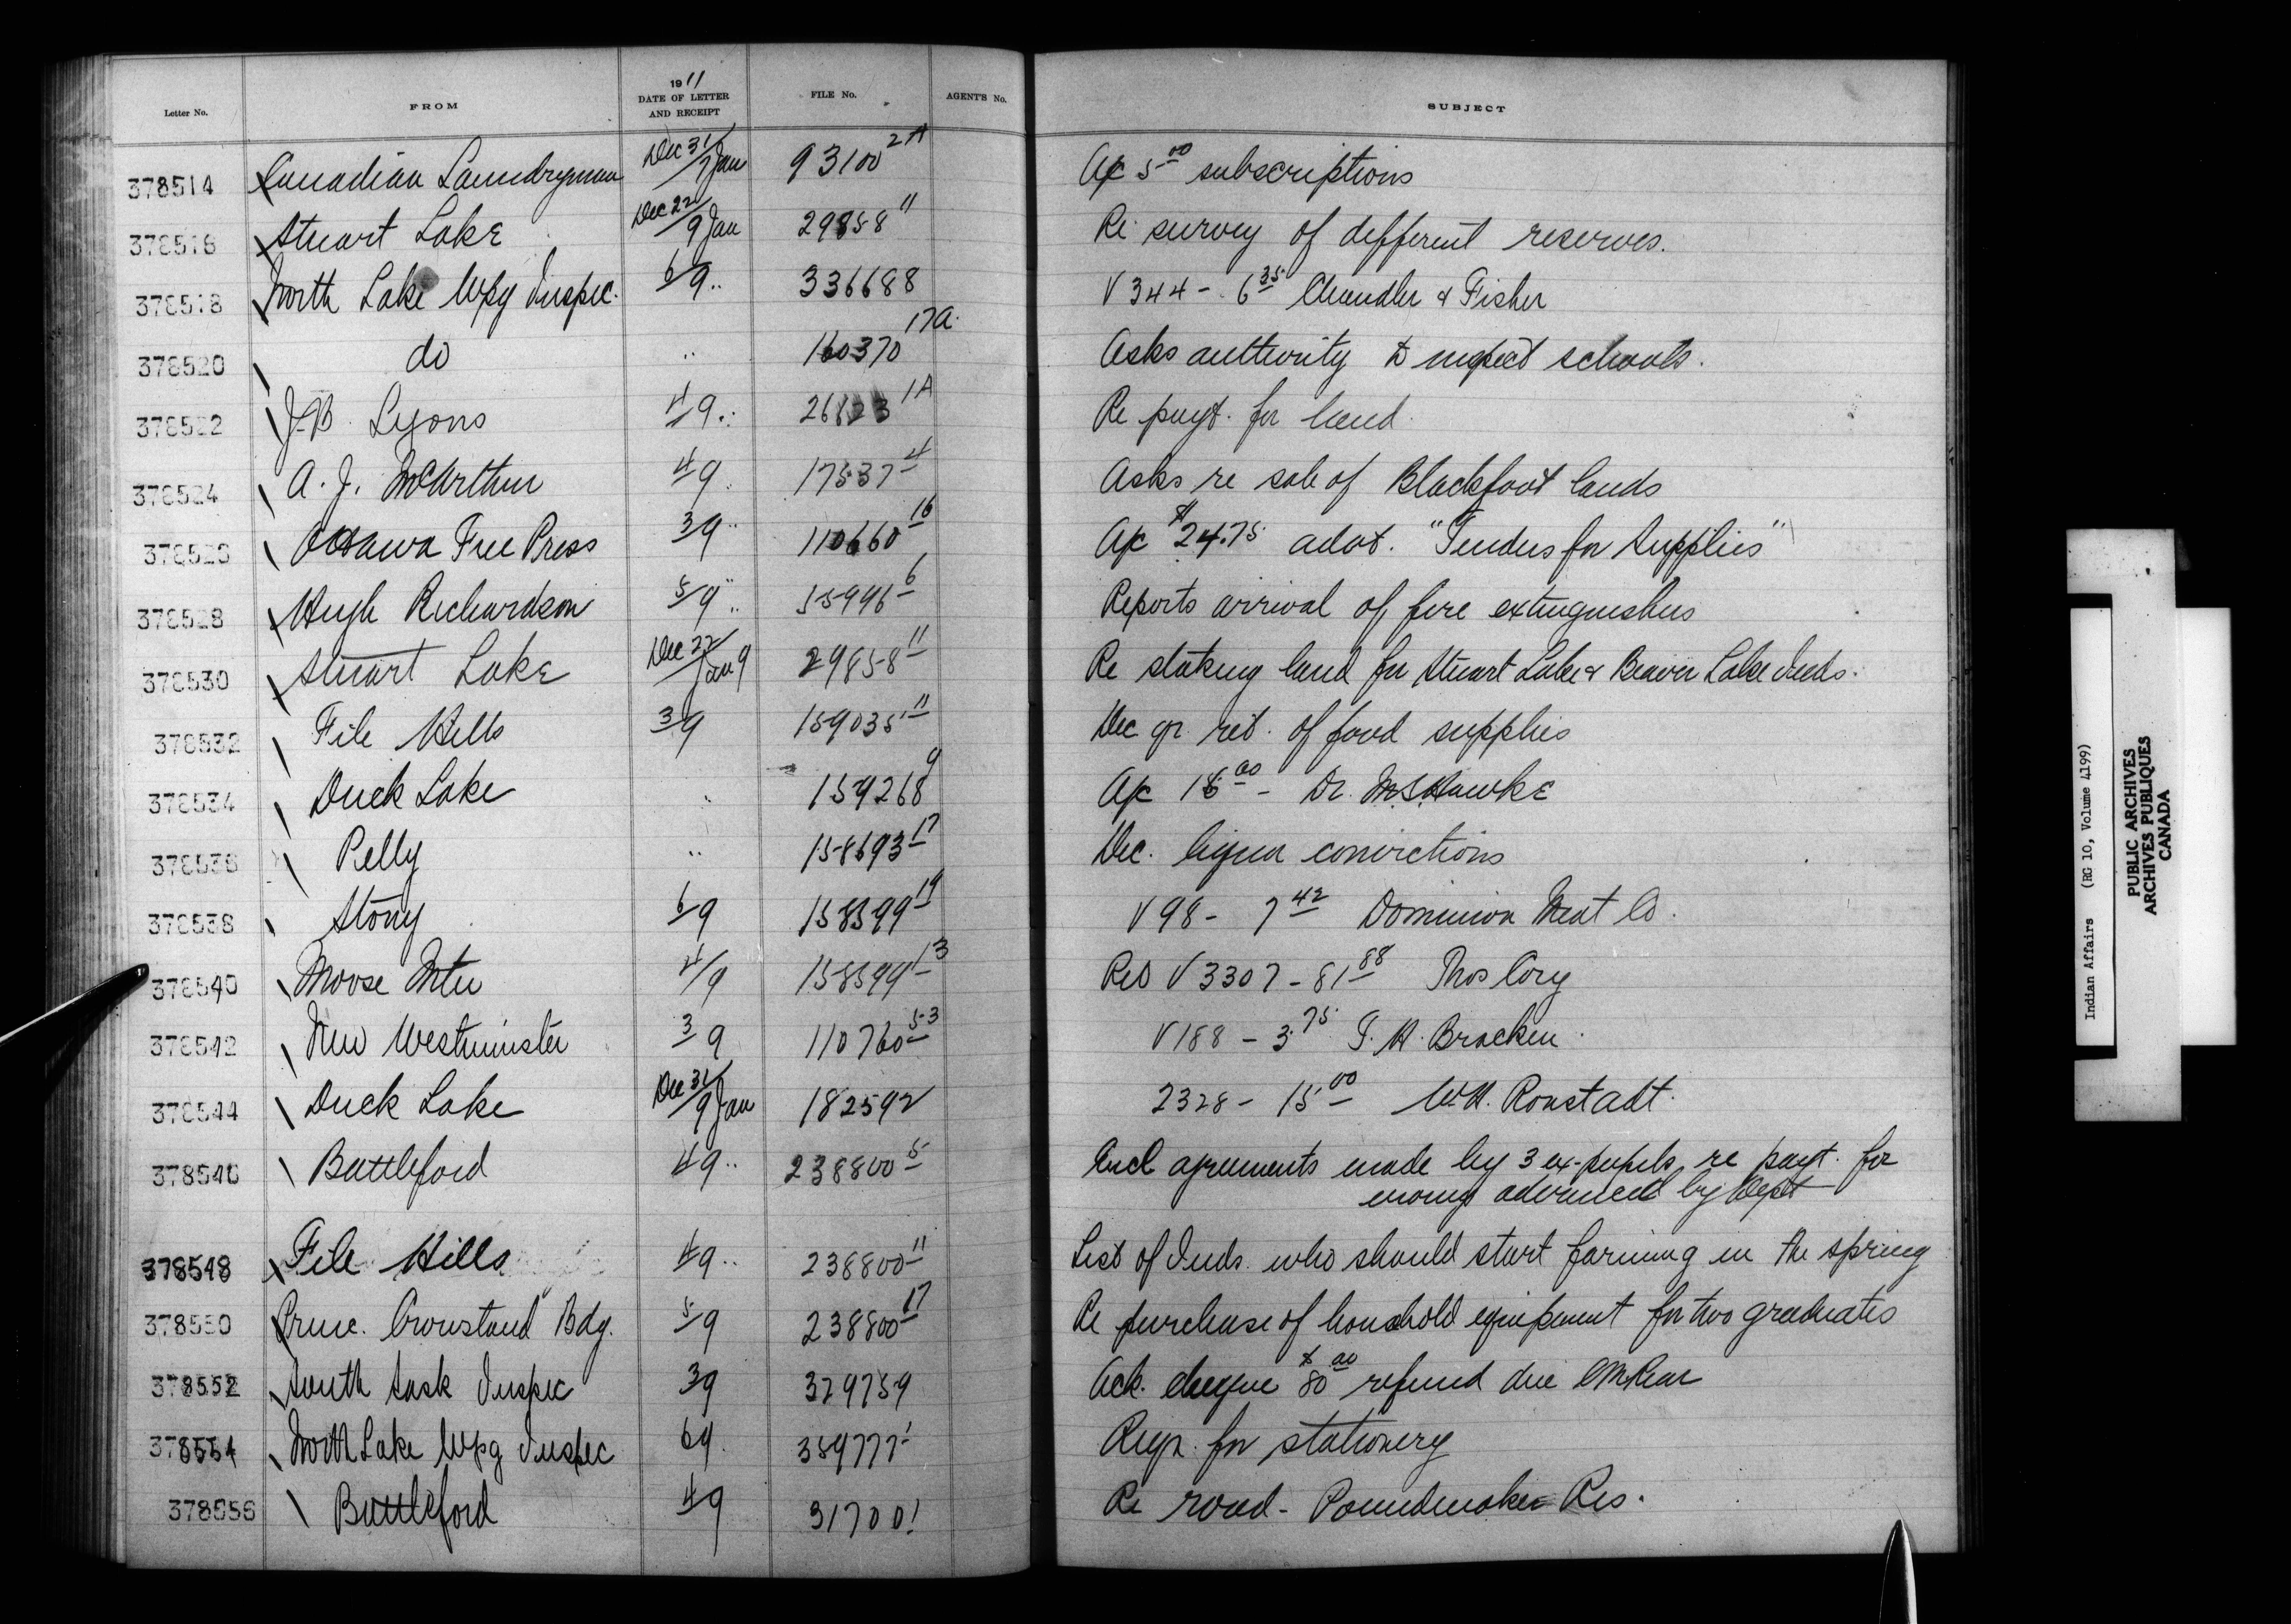 Letter No. FROM 1911 DATE OF LETTER AND RECEIPT FILE No. AGENT'S No. SUBJECT
378514 Canadian Laundryman Dec 31/7 Jan 93100 2A A/c 5 00 subscriptions
378516 Stuart Lake Dec 22/9 Jan 29858 11 Re survey of different reserves.
378518 North Lake Wpg Inspec. 6/9 " 336688 V 344 - 6 35 Chandler & Fisher
378520 do " 160370 17A. Asks authority to inspect schools.
378522 J.B. Lyons 4/9 " 26823 1A Re payt. for land.
378524 A. J. McArthur 4/9 " 17537 4 Asks re sale of Blackfoot lands
378526 Ottawa Free Press 3/9 " 110660 16 A/c $24.75 advt. "Tenders for Supplies"
378528 Hugh Richardson 5/9 " 55996 6 Reports arrival of fire extinguishers
378530 Stuart Lake Dec 22/Jan 9 29858 11 Re staking land for Stuart Lake & Beaver Lake Inds.
378532 File Hills 3/9 159035 11 Dec qr. ret. of food supplies
378534 Duck Lake " 159268 9 A/c 00 - Dr.
378536 Pelly " 158693 17 Dec. liquor convictions
378538 Stony 6/9 158599 19 V 98 - 7 42 Dominion Meat Co.
378540 Moose Mtn 4/9 158599 13 Ret V 3307 - 81 88 Thos Cory
378542 New Westminster 3/9 110760 53 V 188 - 3 75 T. H. Bracken
378544 Duck Lake Dec 31/9 Jan 182592 2328 - 15 00 W.H. Ronstadt.
378546 Battleford 4/9 " 238800 5 Encl agreements made by 3 ex-pupils re payt. for
money advanced by Dept
378548 File Hills 4/9 " 238800 11 List of Inds. who should start farming in the spring
378550 Princ. Crowstand Bdg. 5/9 238800 17 Re purchase of household equipment for two graduates
378552 South Sask Inspec 3/9 379759 Ack. cheque $80 00 refund due
378554 North Lake Wpg Inspec 6/9 359777 1 Reqn. for stationery
378556 Battleford 4/9 31700 1 Re road - Poundmaker Res.
Indian Affairs (RG 10, Volume 4199)
PUBLIC ARCHIVES
ARCHIVES PUBLIQUES
CANADA